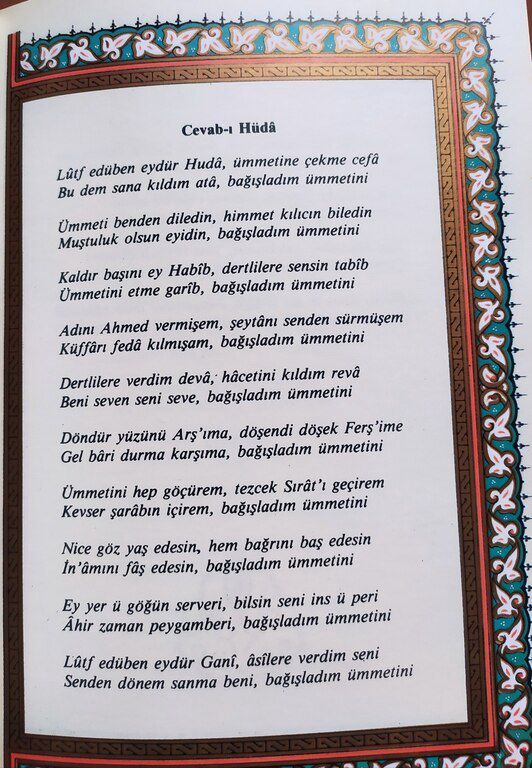 Cevab-ı Hüdâ
Lûtf edüben eydür Hudâ, ümmetine çekme cefâ
Bu dem sana kıldım atâ, bağışladım ümmetini
Ümmeti benden diledin, himmet kılıcın biledin
Muştuluk olsun eyidin, bağışladım ümmetini
Kaldır başını ey Habîb, dertlilere sensin tabîb
Ümmetini etme garîb, bağışladım ümmetini
Adını Ahmed vermişem, şeytânı senden sürmüşem
Küffârı fedâ kılmışam, bağışladım ümmetini
Dertlilere verdim devâ, hâcetini kıldım revâ
Beni seven seni seve, bağışladım ümmetini
Döndür yüzünü Arş'ıma, döşendi döşek Ferş'ime
Gel bâri durma karşıma, bağışladım ümmetini
Ümmetini hep göçürem, tezcek Sırât'ı geçirem
Kevser şarâbın içirem, bağışladım ümmetini
Nice göz yaş edesin, hem bağrını baş edesin
İn'âmını fâş edesin, bağışladım ümmetini
Ey yer ü göğün serveri, bilsin seni ins ü peri
Âhir zaman peygamberi, bağışladım ümmetini
Lûtf edüben eydür Ganî, âsîlere verdim seni
Senden dönem sanma beni, bağışladım ümmetini